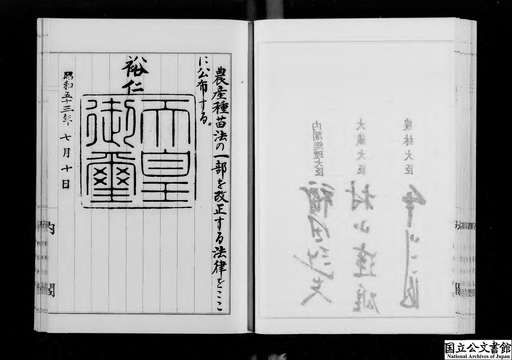 農産種苗法の一部を改正する法律をここ
に公布する。
裕仁
天皇
御璽
昭和五十三年七月十日
内閣
農林大臣
大蔵大臣 村山達雄
内閣総理大臣 福田赳夫
国立公文書館
National Archives of Japan